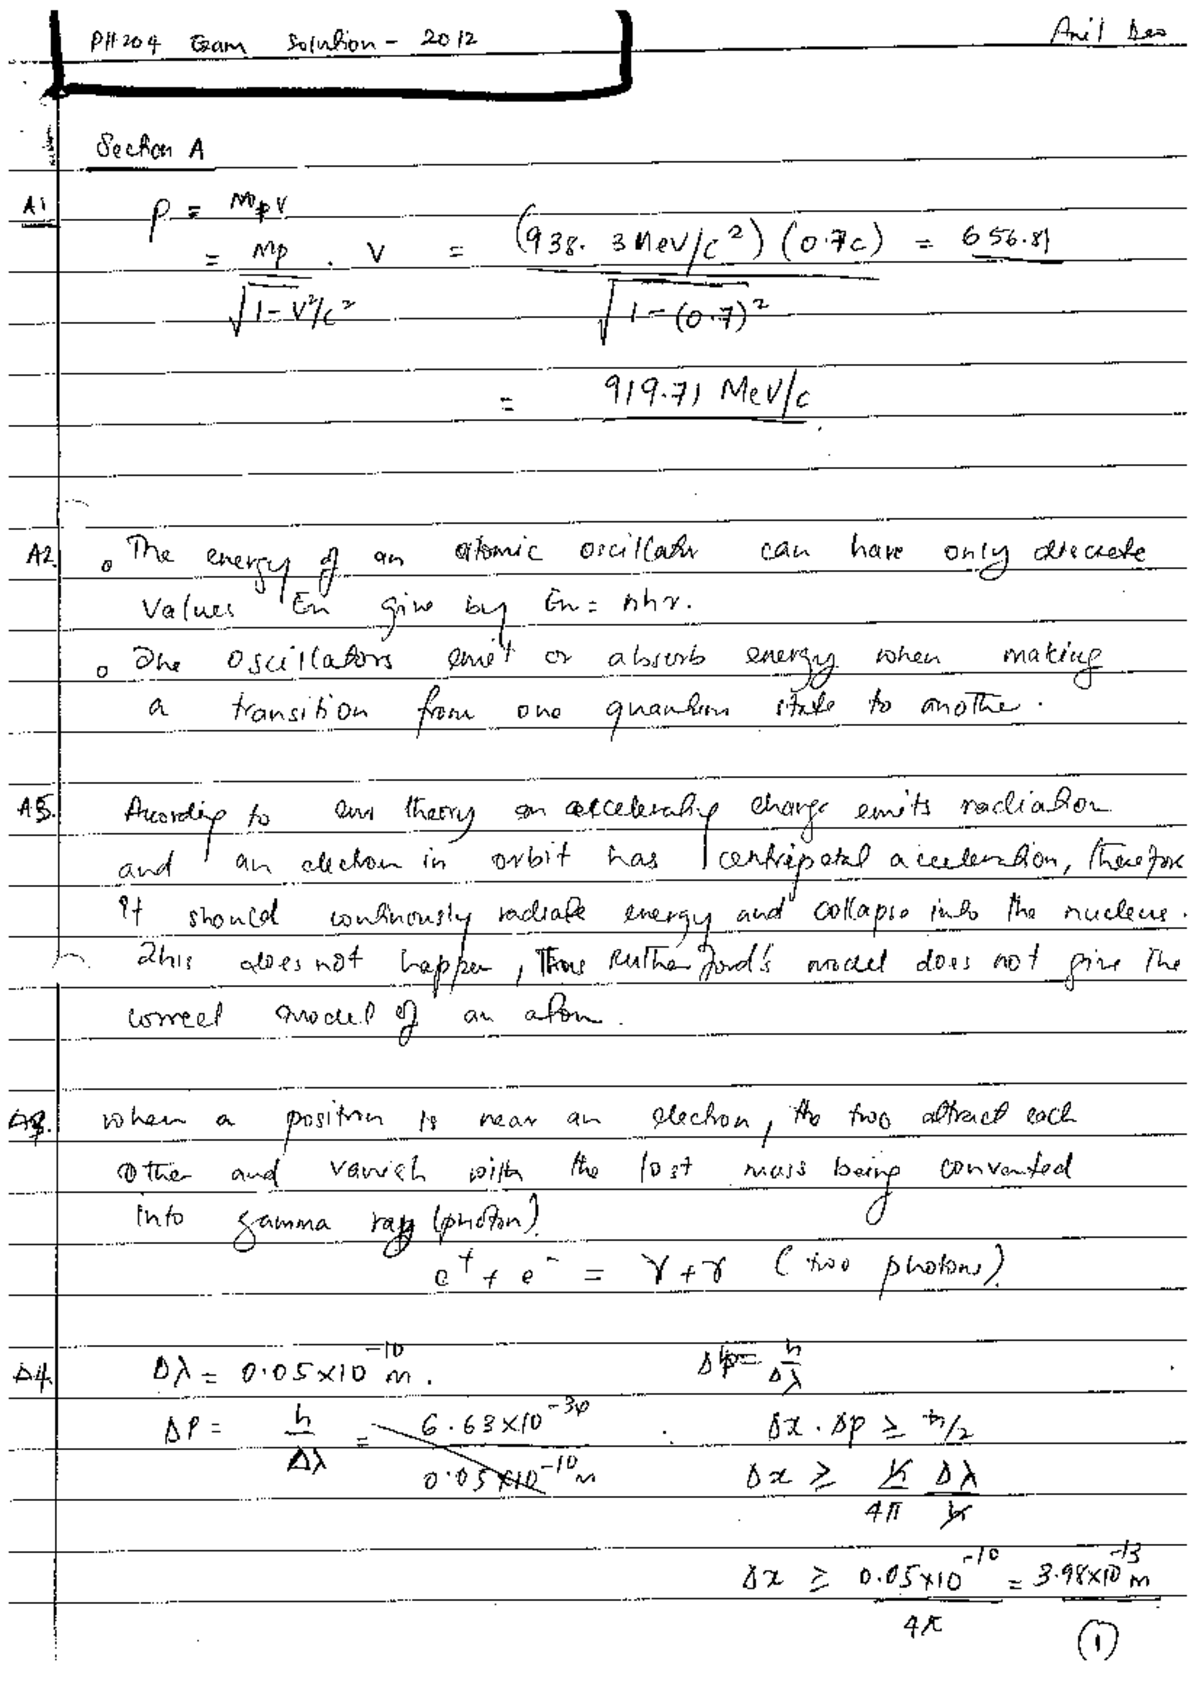 PH204 Exam Solution - 2012
Anil Deo
Section A
A1 p = Mpv
= Mp/√(1-v²/c²) . v = (938.3 MeV/c²)(0.7c)/√(1-(0.7)²) = 656.81
= 919.71 MeV/c
A2. o The energy of an atomic oscillator can have only discrete
values En give by En = nhν.
o The oscillators emit or absorb energy when making
a transition from one quantum state to another.
A5. According to em theory an accelerating charge emits radiation
and an electron in orbit has centripetal acceleration, therefore
it should continously radiate energy and collapse into the nucleus.
This does not happen, Thus Rutherford's model does not give the
correct model of an atom.
A3. When a positron is near an electron, the two attract each
other and vanish with the lost mass being converted
into gamma ray (photon).
e⁺ + e⁻ = γ + γ (two photons).
A4. Δλ = 0.05×10⁻¹⁰ m. Δp = h/Δλ
Δp = h/Δλ = 6.63×10⁻³⁴/0.05×10⁻¹⁰ m Δx . Δp ≥ ħ/2
Δx ≥ h/4π Δλ/h
Δx ≥ 0.05×10⁻¹⁰/4π = 3.98×10⁻¹³ m
(1)